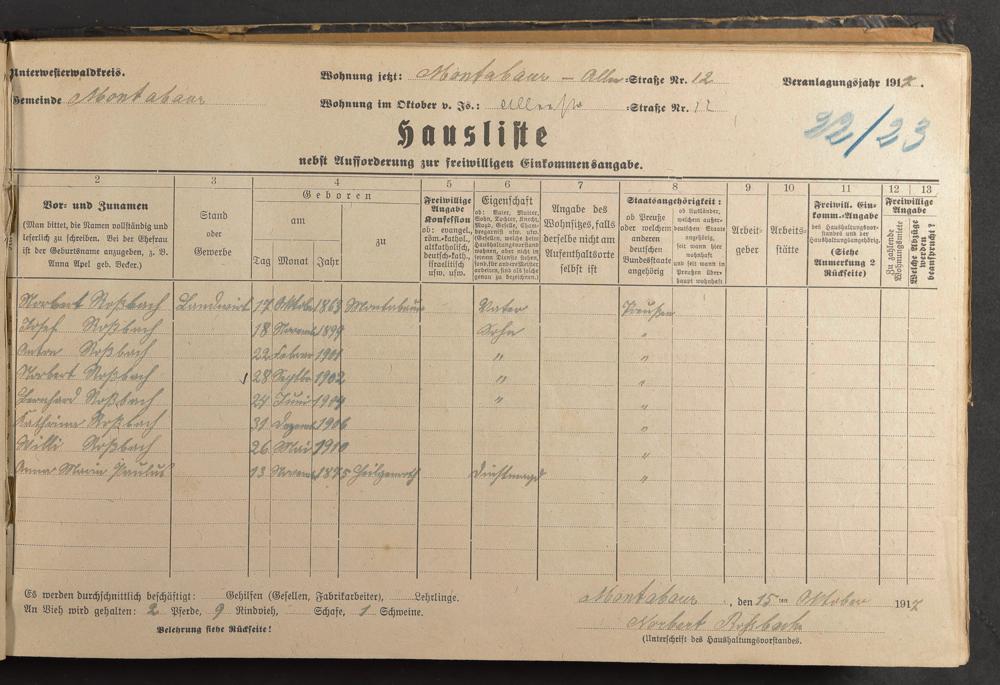 Unterwesterwaldkreis.
Gemeinde Montabaur
Wohnung jetzt: Montabaur - Allee-Straße Nr. 12
Wohnung im Oktober v. Js.: Alleestr -Straße Nr. 12
Veranlagungsjahr 191
22/23
Hausliste
nebst Aufforderung zur freiwilligen Einkommensangabe.
2 3 4 5 6 7 8 9 10 11 12 13
Vor- und Zunamen
(Man bittet, die Namen vollständig und
leserlich zu schreiben. Bei der Ehefrau
ist der Geburtsname anzugeben, z. B.
Anna Apel geb. Becker.)
Stand
oder
Gewerbe
Geboren
am
Tag Monat Jahr
zu
Freiwillige
Angabe
Konfession
ob: evangel.,
röm.-kathol.,
altkatholisch,
deutsch-kath.,
israelitisch
usw. usw.
Eigenschaft
ob: Vater, Mutter,
Sohn, Tochter, Knecht,
Magd, Geselle, Cham-
bregarnist usw. usw.
Angabe des
Wohnsitzes, falls
derselbe nicht am
Aufenthaltsorte
selbst ist
Staatsangehörigkeit:
ob Preuße
oder welchem
anderen
deutschen
Bundesstaate
angehörig
ob Ausländer,
welchem außer-
deutschen Staate
angehörig,
seit wann hier
wohnhaft
und seit wann in
Preußen über-
haupt wohnhaft
Arbeit-
geber
Arbeits-
stätte
Freiwill. Ein-
komm.-Angabe
des Haushaltungsvor-
standes und der
Haushaltungsangehörig.
(Siehe
Anmerkung 2
Rückseite)
Freiwillige
Angabe
Zu zahlende
Wohnungsmiete
Welche Abzüge
werden
beansprucht?
Norbert Roßbach Landwirt 17 Oktober 1863 Montabaur Vater Preußen
Josef Roßbach 18 Novemb 1899 Sohn "
Anton Roßbach 22 Februar 1901 " "
Norbert Roßbach 28 Septbr 1902 " "
Bernhard Roßbach 24 Juni 1904 " "
Katharina Roßbach 31 Dezemb 1906 "
Willi Roßbach 26 Mai 1910 "
Anna Maria Paulus 13 Novemb 1875 Heilgenroth Dienstmagd "
Es werden durchschnittlich beschäftigt: Gehilfen (Gesellen, Fabrikarbeiter), Lehrlinge.
An Vieh wird gehalten: 2 Pferde, 9 Rindvieh, Schafe, 1 Schweine.
Belehrung siehe Rückseite!
Montabaur, den 15ten Oktober 1917
Norbert Roßbach
(Unterschrift des Haushaltungsvorstandes.